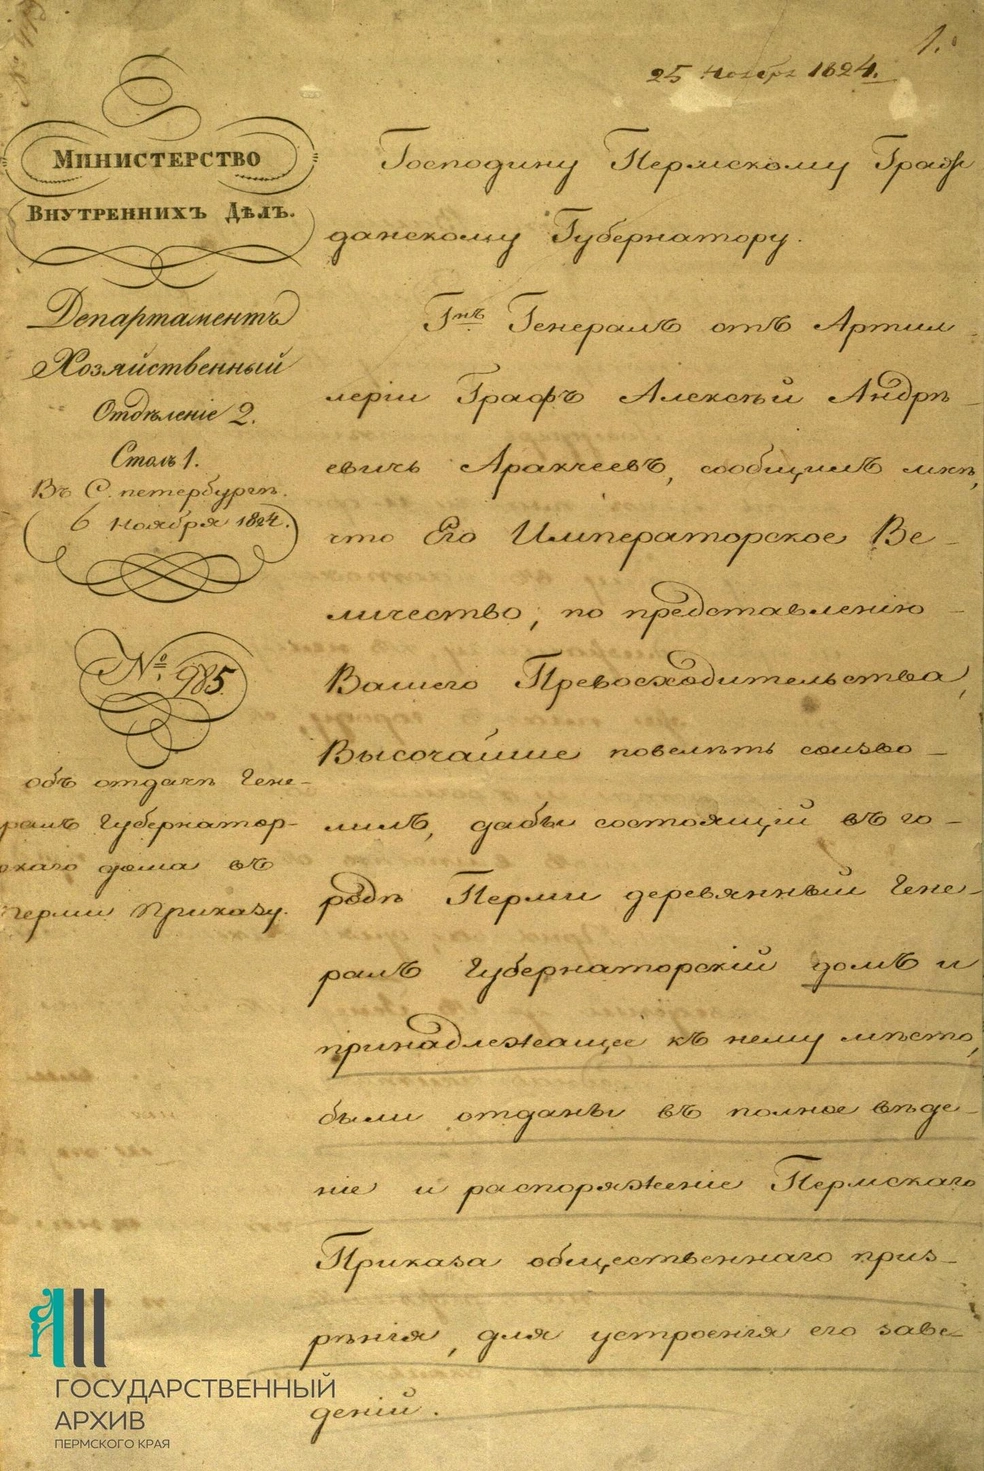 1.
25 Ноября 1824.
Министерство
Внутреннихъ Дѣлъ.
Департаментъ
Хозяйственный
Отдѣленіе 2.
Столъ 1.
Въ С. петербургѣ.
6 Ноября 1824.
№ 985.
объ отдачѣ Гене-
ралъ Губернатор-
скаго дома въ
Перми Приказу.
Господину Пермскому Граж
данскому Губернатору.
Гнъ Генералъ отъ Артил-
леріи Графъ Алексѣй Андрѣ-
евичь Аракчеевъ, сообщилъ мнѣ,
что Его Императорское Ве-
личество, по представленію
Вашего Превосходительства,
Высочайше повелѣть соизво-
лилъ, дабы состоящій въ го-
родѣ Перми деревянный Гене-
ралъ Губернаторскій домъ и
принадлежащее къ нему мѣсто,
были отданы въ полное вѣде-
ніе и распоряженіе Пермскаго
Приказа общественнаго приз-
рѣнія, для устроенія его заве-
деній.
ГОСУДАРСТВЕННЫЙ
АРХИВ
ПЕРМСКОГО КРАЯ